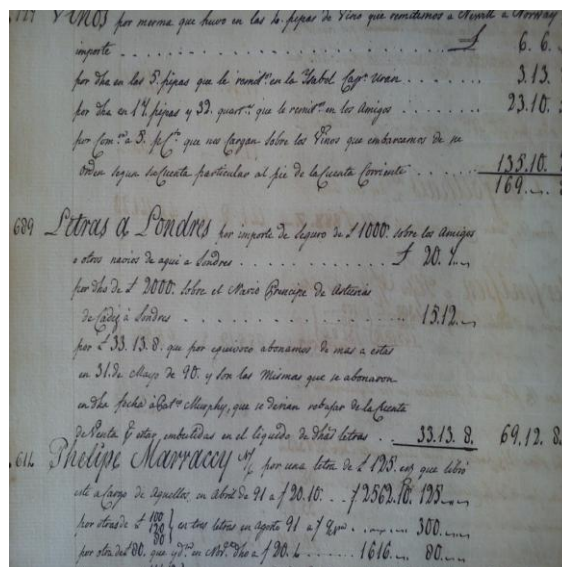 VINOS por merma que huvo en las 10. pipas de Vino que remitimos a Newill a Norway
importe £ 6. 6.
por dha en las 5. pipas que le remit.os en la Isabel Cap.n Uran 3.13.
por dha en 17. pipas y 32. quart.s que le remit.os en los Amigos 23.10.
por Com.on a 5. p.C.to que nos Cargan sobre los Vinos que embarcamos de su
orden segun su Cuenta particular al pie de la Cuenta Corriente 135.10.
169
689 Letras a Londres por importe de Seguro de £ 1000. sobre los Amigos
o otros navios de aqui a Londres £ 20.
por dho de £ 2000. sobre el Navio Principe de Asturias
de Cadiz a Londres 15.12.
por £ 33. 13. 8. que por equivoco abonamos de mas a estas
en 31. de Mayo de 90. y son las mismas que se abonaron
en dha fecha a Murphy, que se devian rebajar de la Cuenta
de Venta estar embebidas en el liquido de dhas letras 33.13. 8. 69.12. 8.
611 Phelipe Marraccy por una letra de £ 125. que libró
este a Cargo de aquellos, en Abril de 91 a f 20.10. f 2562.10. 125
por otras de £ 100 120 80 en tres letras en agosto 91 a f 300.
por otra de £ 80. que en Nov.e dho a f 20. 1616. 80.